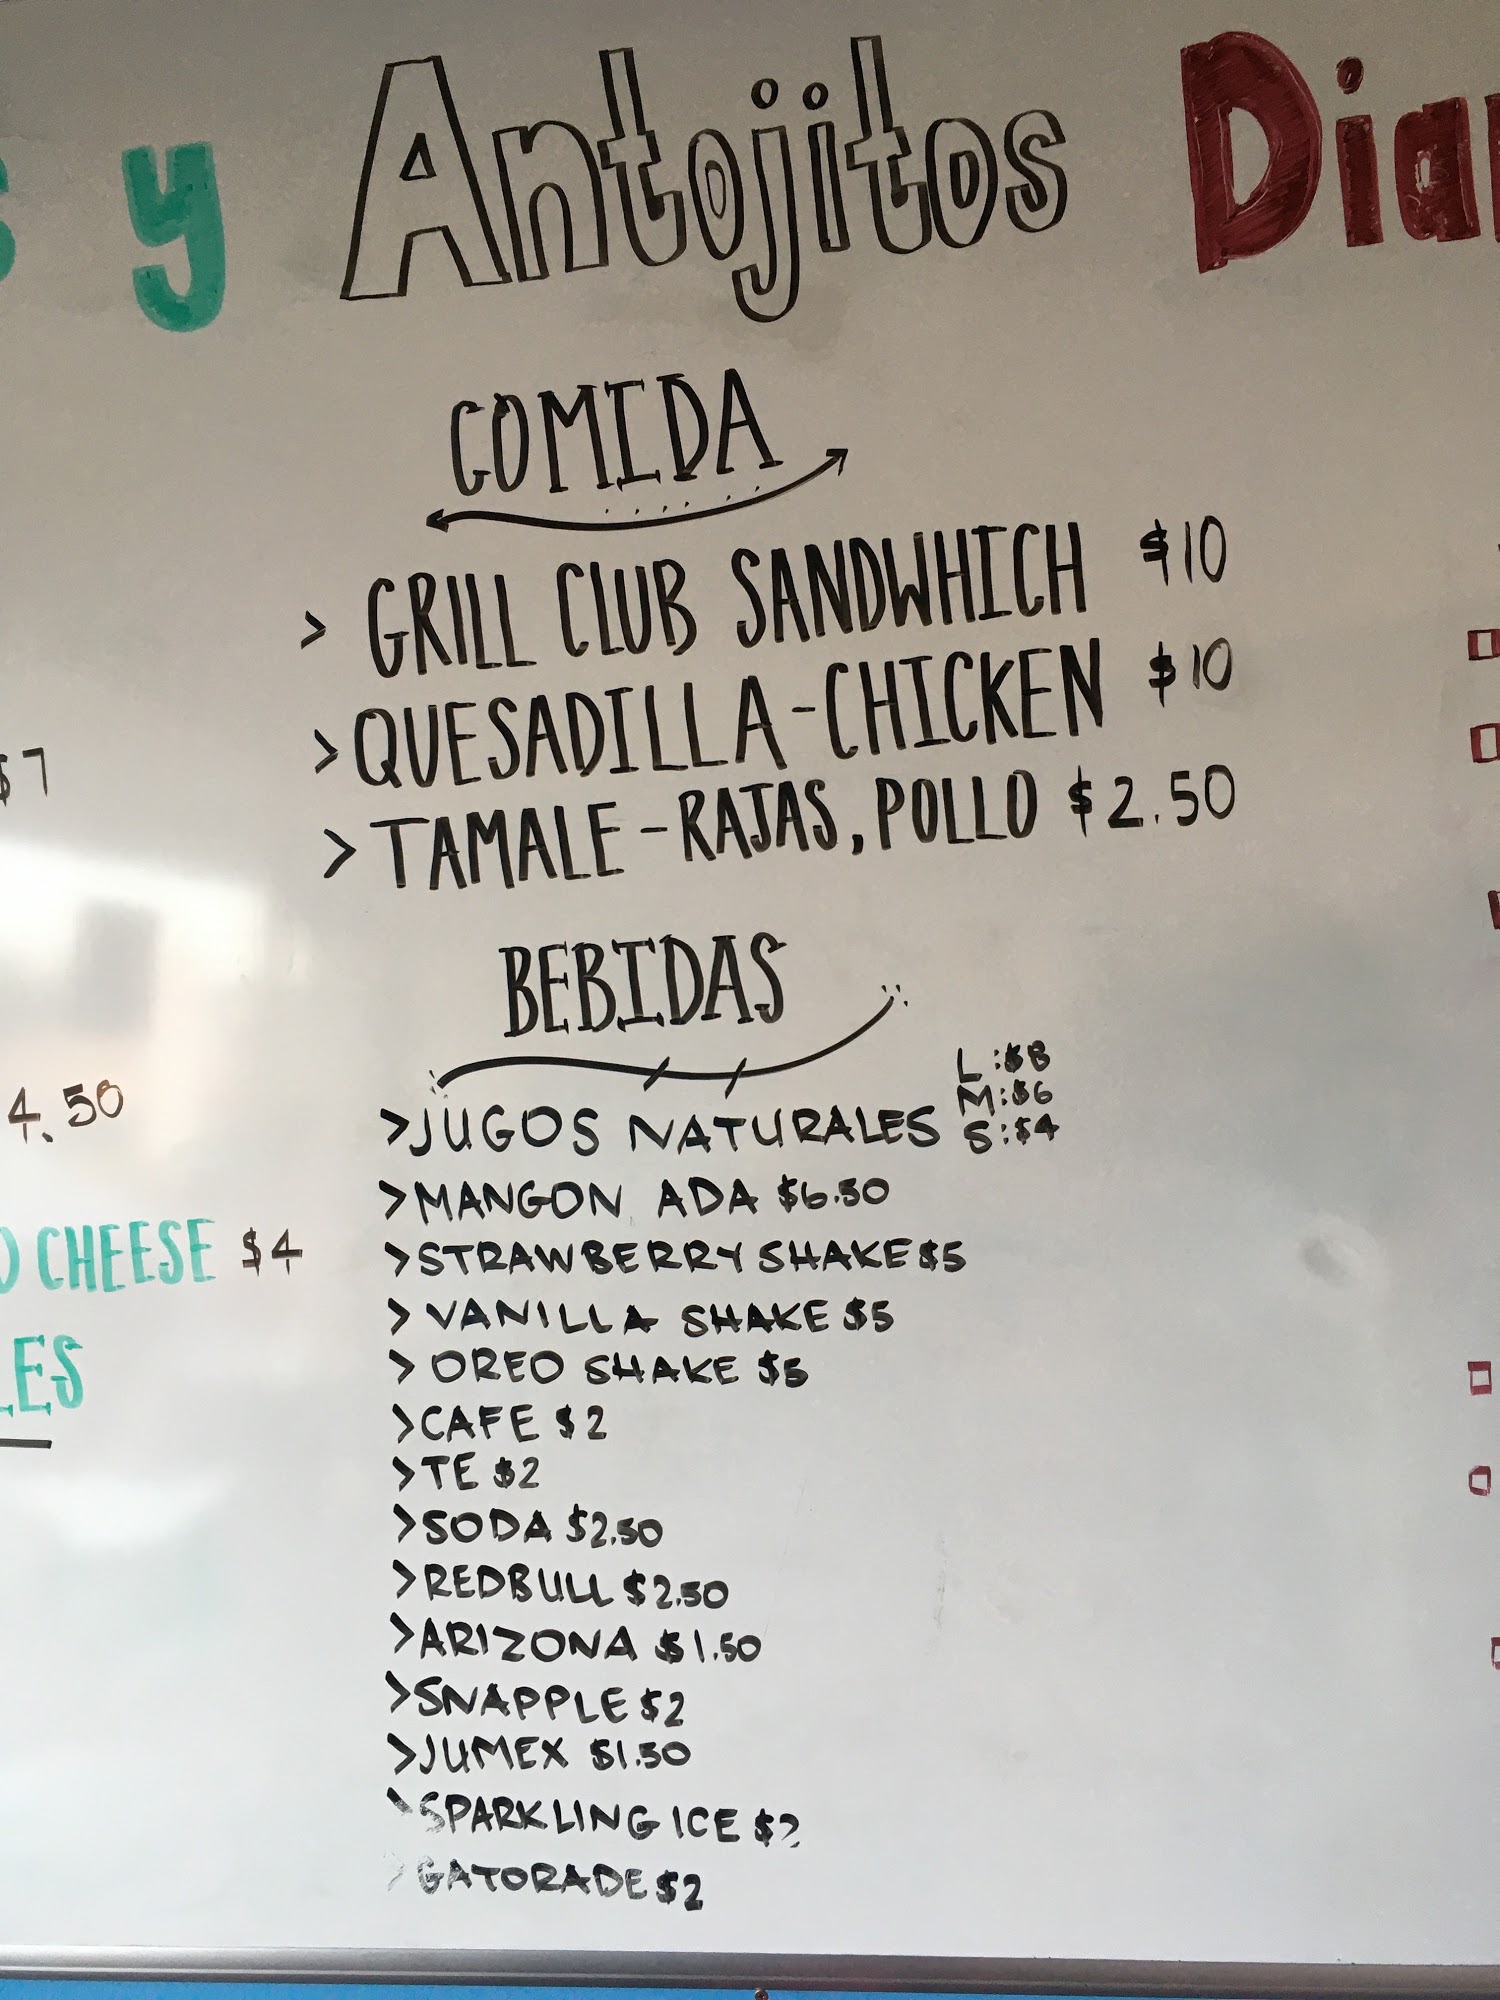 y Antojitos Dia
COMIDA
> GRILL CLUB SANDWHICH $10
> QUESADILLA-CHICKEN $10
> TAMALE-RAJAS, POLLO $2.50
$7
BEBIDAS
L:$8
M:$6
S:$4
4.50
>JUGOS NATURALES
>MANGON ADA $6.50
CHEESE $4
>STRAWBERRY SHAKE $5
> VANILLA SHAKE $5
LES
> OREO SHAKE $5
>CAFE $2
>TE $2
>SODA $2.50
>REDBULL $2.50
>ARIZONA $1.50
>SNAPPLE $2
>JUMEX $1.50
>SPARKLING ICE $2
>GATORADE $2